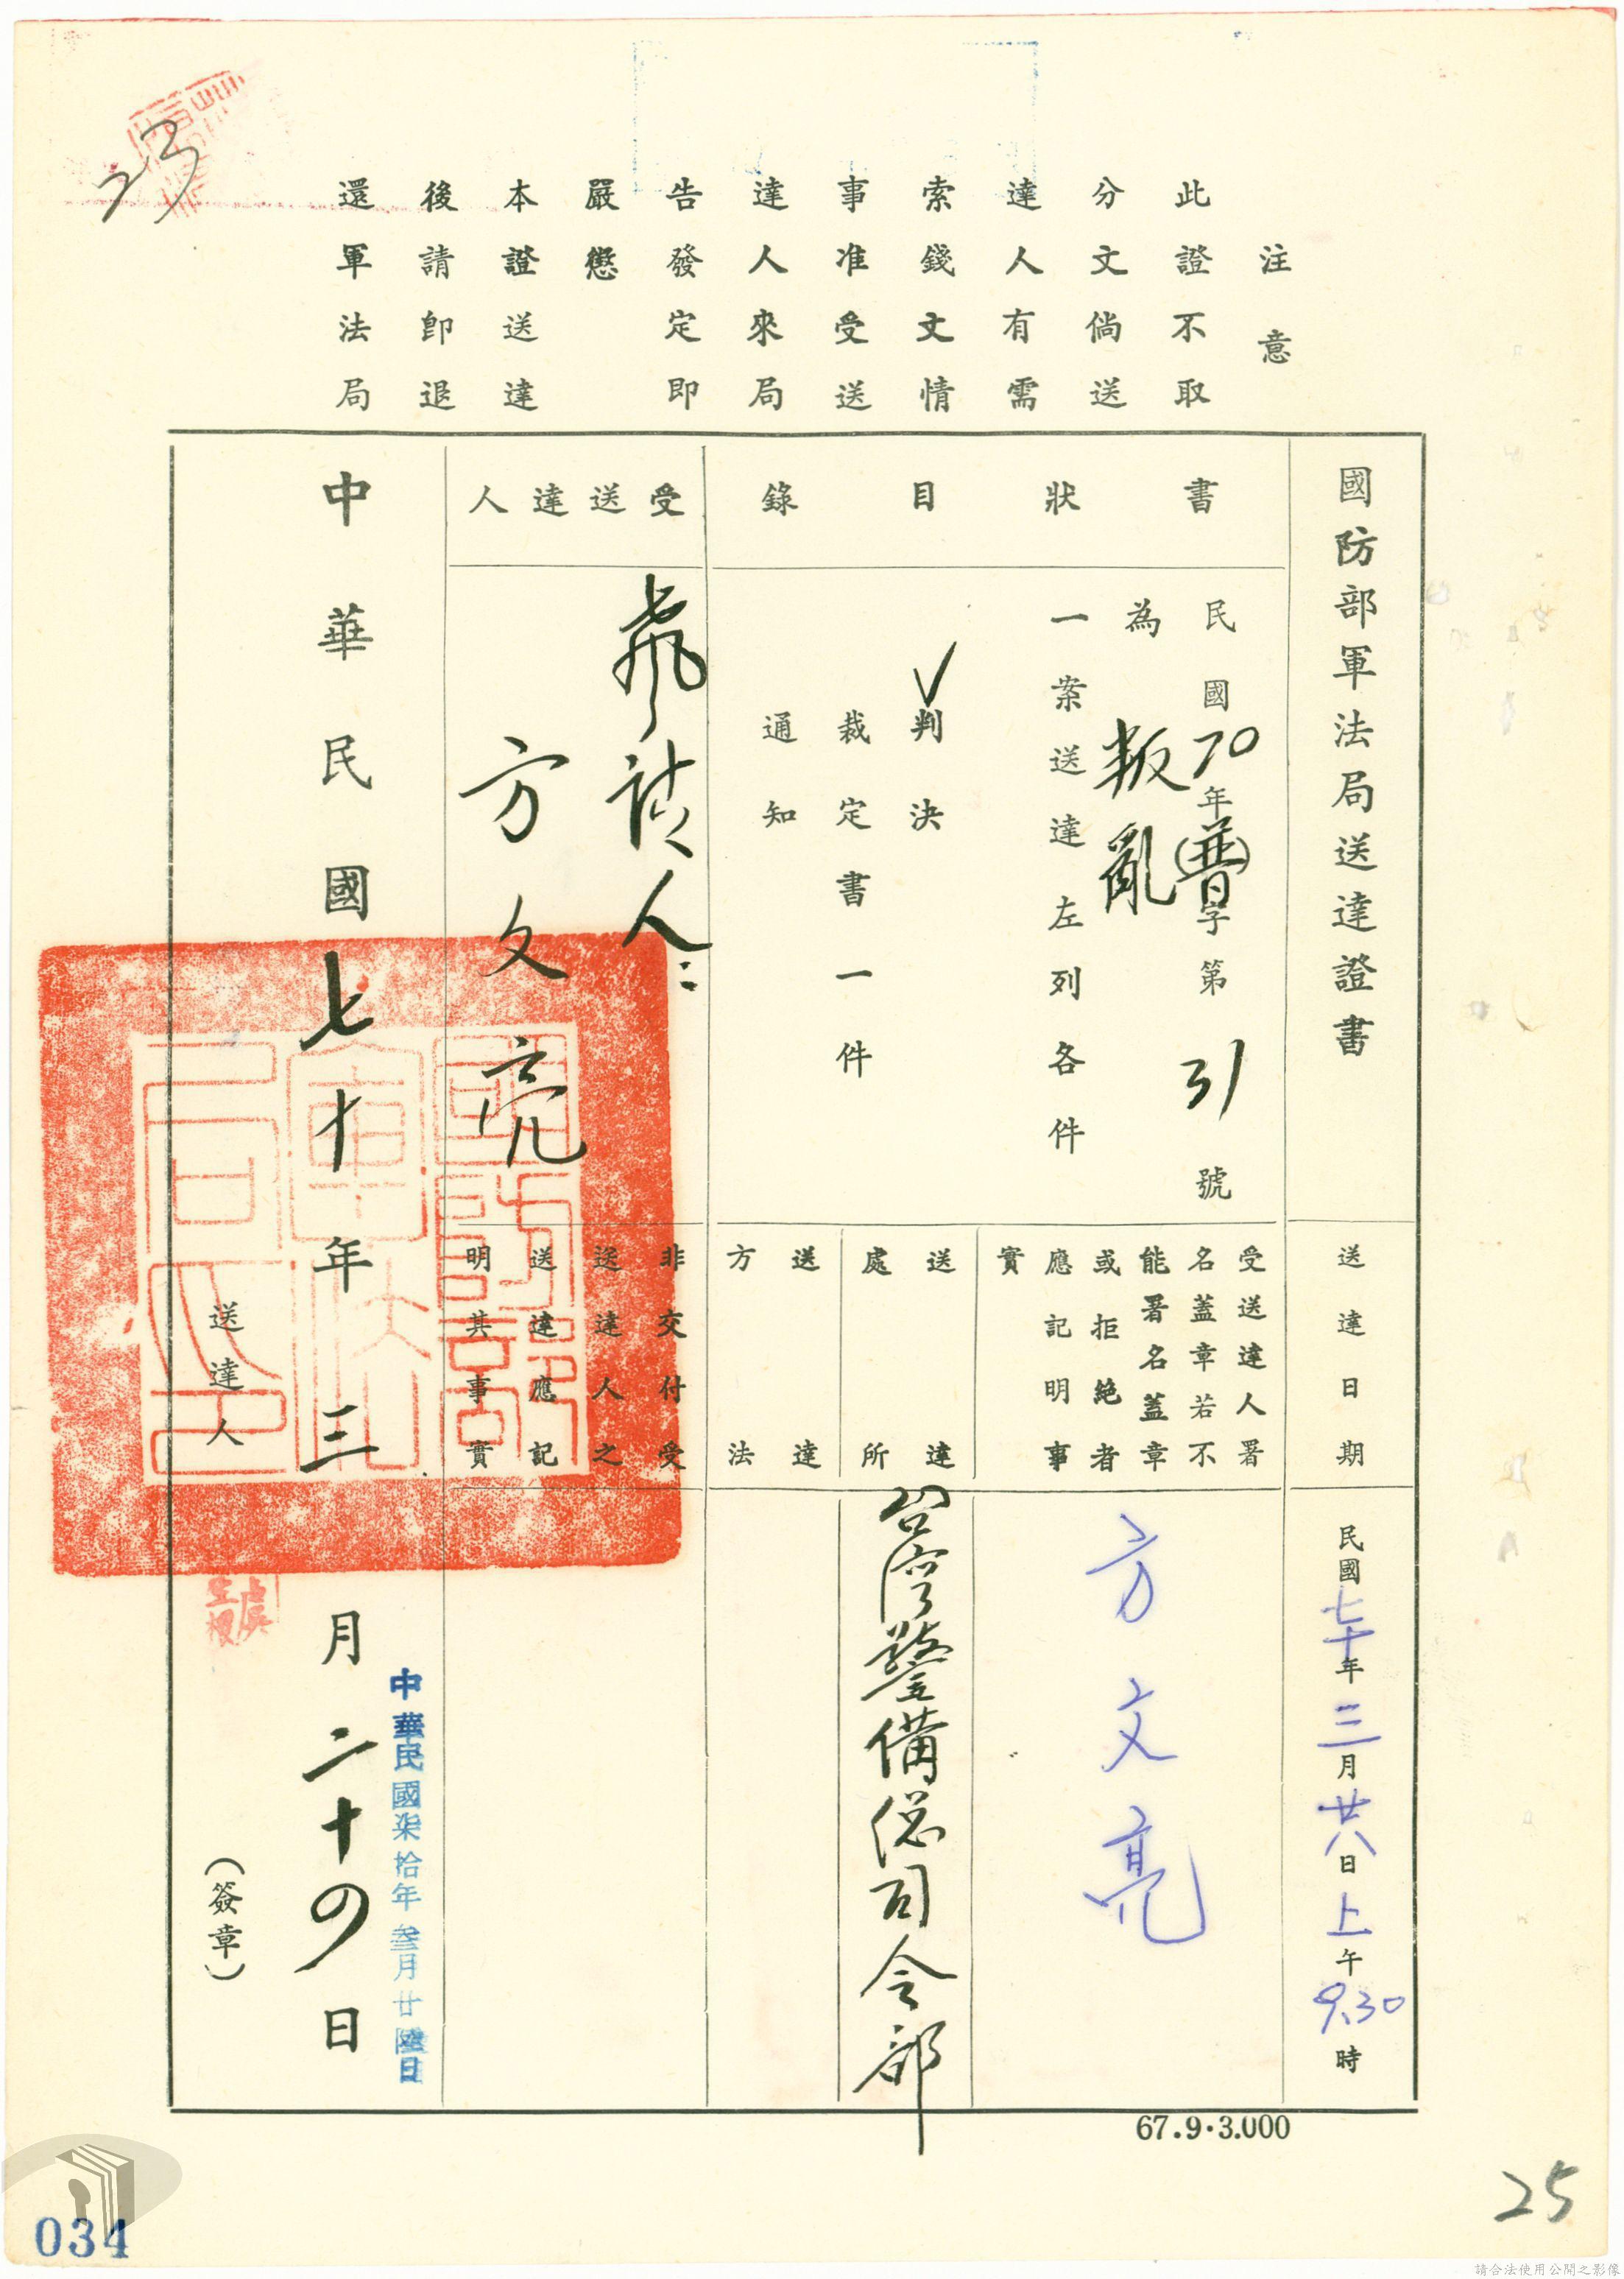 注意
此證不取
分文倘送
達人有需
索錢文情
事准受送
達人來局
告發定即
嚴懲
本證送達
後請即退
還軍法局
23
國防部軍法局送達證書
送達日期
民國七十年三月廿八日上午9.30時
書狀目錄
民國70年(普)字第31號
為叛亂
一案送達左列各件
✓判決
裁定書一件
通知
受送達人署
名蓋章若不
能署名蓋章
或拒絶者
應記明事
實
方文亮
送達
處所
台灣警備總司令部
送達
方法
受送達人
聲請人:
方文亮
非交付受
送達人之
送達應記
明其事實
中華民國七十年三月二十四日
國防部軍法局印
中華民國柒拾年叁月廿陸日
送達人
(簽章)
67.9.3.000
25
034
請合法使用公開之影像